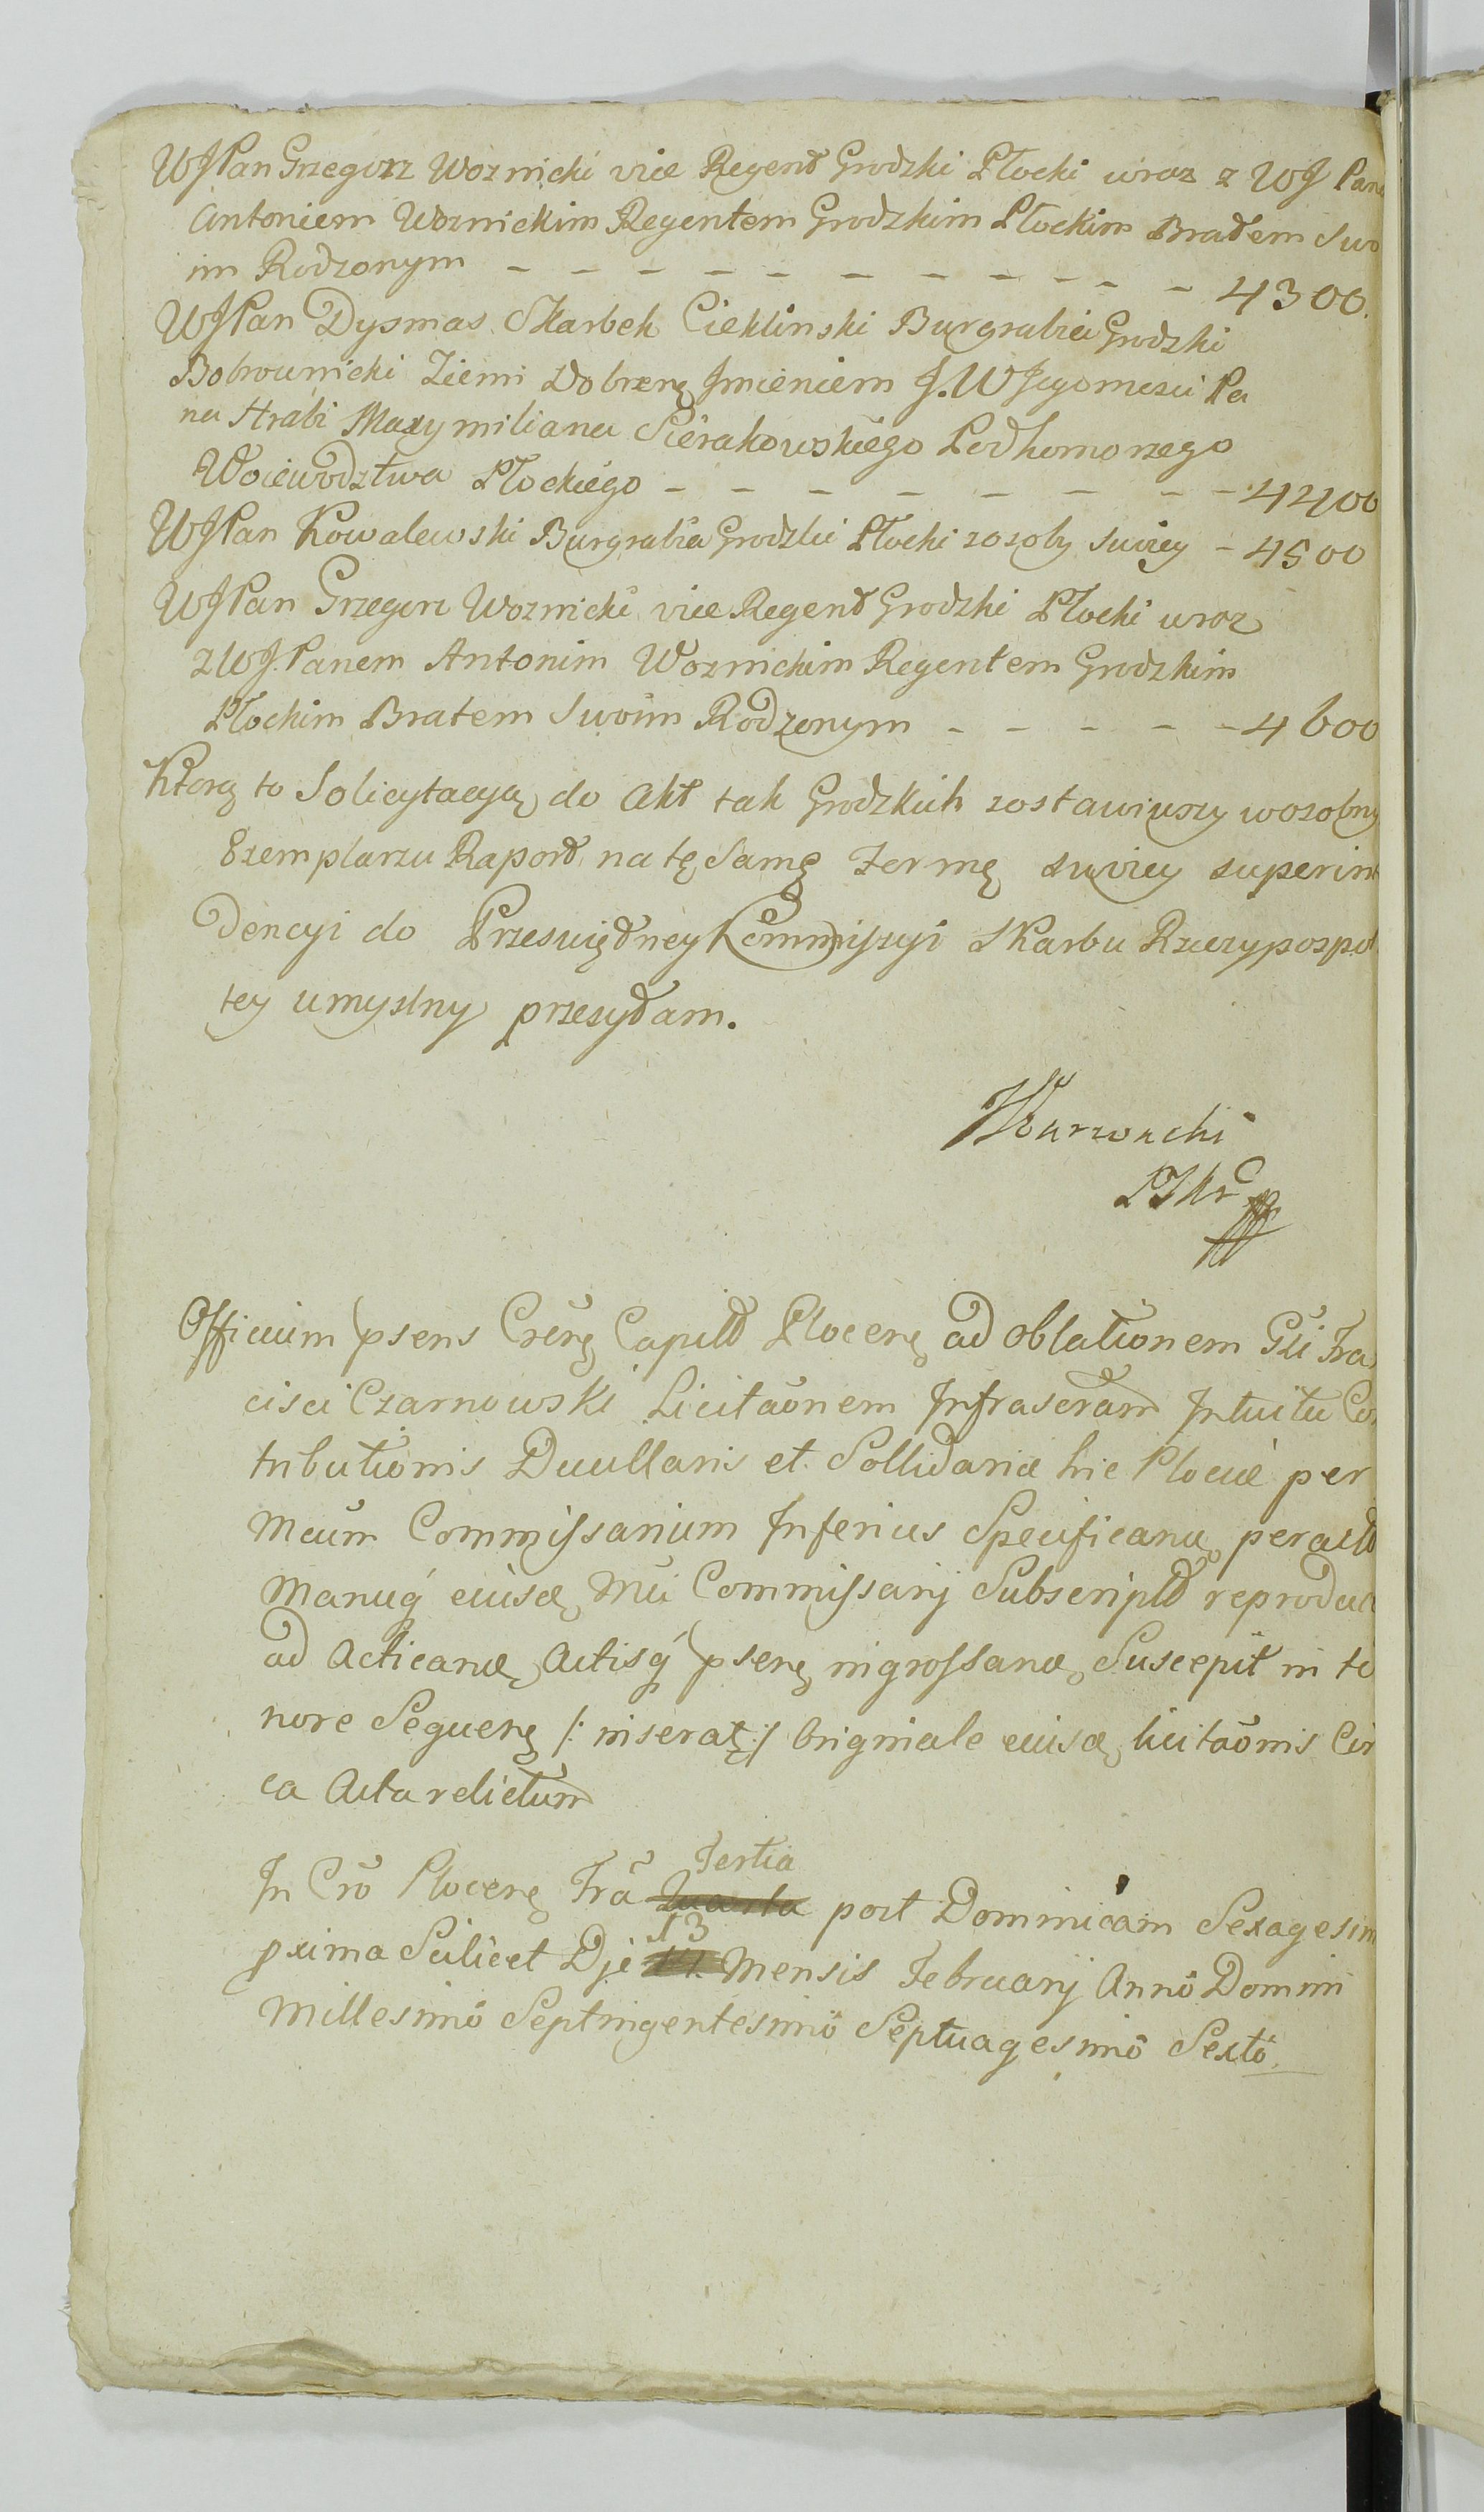 WJPan Grzegorz Woznicki vice Regent Grodzki Płocki wraz z WJ Pane
Antoniem Woznickim Regentem Grodzkim Płockim Bratem Swo
im Rodzonym - - - - - - - - - - - 4300.
WJPan Dyzmas Skarbek Cieklinski Burgrabia Grodzki
Bobrownicki Ziemi Dobrzenę Imieniem J. W Jegomosci Pa
na Hrabi Maxymiliana Sierakowskiego Podkomorzego
Woiewodztwa Płockiego - - - - - - - - 4400
WJPan Kowalewski Burgrabia Grodzki Płocki zosoby Swiey - 4500
WJPan Grzegorz Woznicki vice Regent Grodzki Płocki wraz
z WJ. Panem Antonim Woznickim Regentem Grodzkim
Płockim Bratem Swoim Rodzonym - - - - - 4600
Ktorą to Solicytacyą do Akt tak Grodzkich zostawiwszy wosobny
Exemplarzu Raport na tę Samę Formę swiey superint
dencyi do Przeswiętney Kommissyi Skarbu Rzeczypospol
tey umyslny przesyłam.
Officium psens Crēne Capitt Plocenę ad oblationem Gsi Fra
cisci Czarnowski Licitaōnem Infrascram Intuitu Co
tributionis Duullaris et Sollidariæ hic Plociæ per
Mcum Commissarium Inferius Specificanđ peractt
Manuq eiusđ Mci Commissarij Subscriptt reproduc
ad Acticanđ Actisq psenę ingrossanđ Suscepit in te
nore Sequenę /: inseratę :/ Originale eiusđ licitaōnis Cir
ca Acta relictum
In Crō Plocenę Frā Tertia post Dominicam Sexagesim
pxima Scilicet Dje 13 Mensis Februarij Annô Domini
Millesimô Septingentesimô Septuagesimô Sextô.